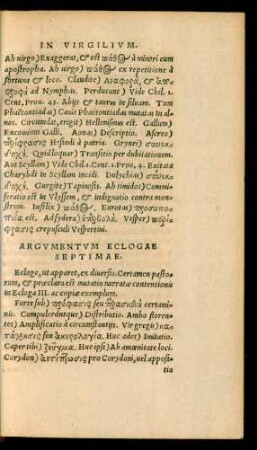 IN VIRGILIVM.
Ah uirgo) Exaggerat, & est πάθος à minori cum
apostropha. Ah uirgo) πάθος ex repetitione à
fortuna & loco. Claudite) Διαφορά, &
ad Nymphas. Perducant) Vide Chil. 1.
Cent. Prou. 43. Abijs & tauros in siluam. Tum
Phaëtontiadas) Canit Phaëtontiadas mutatas in al
nos. Circundat, erigit) Hellenismus est. Gallum)
Encomium Galli. Aonas) Descriptio. Ascreo)
περίφρασις Hesiodi à patria. Grynei)
Quid loquar) Transitio per dubitationem.
Aut Scyllam) Vide Chil. 1. Cent. 1. Prou. 4. Euitata
Charybdi in Scyllam incidi. Dulychias)
Gurgite) Tapinosis. Ah timidos) Commi-
seratio est in Vlyssem, & indignatio contra mon-
strum. Infelix) πάθος. Eurotas) προσωπο-
ποιία est. Ad sydera) ὑπερβολὴ. Vesper) περί-
φρασις crepusculi Vespertini.
ARGVMENTVM ECLOGAE
SEPTIMAE.
Ecloge, ut apparet, ex diuersis. Certamen pasto-
rum, & præclara est mutatio narratæ contentionis
in Ecloga III. ac copiæ exemplum.
Forte sub) πρόφασις seu certami-
nis. Compulerántque) Distributio. Ambo floren-
tes) Amplificatio à circunstantijs. Vir gregis) κα-
τάχρησις seu ἀκυρολογία. Huc ades) Inuitatio.
Caper tibi) ζεῦγμα. Huc ipsi) Ab amœnitate loci.
Corydon) pro Corydoni, uel apposi-
tio